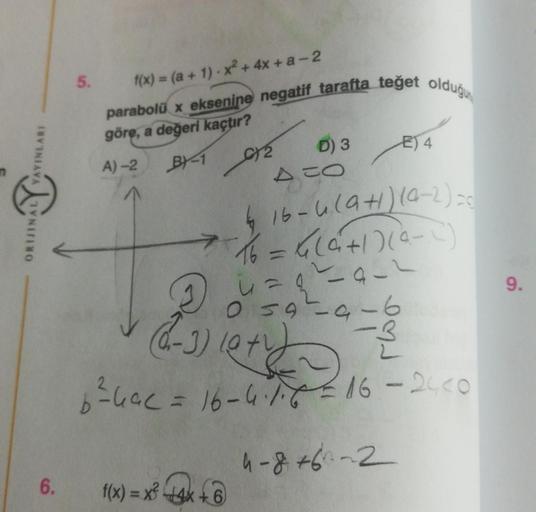 5.
f(x) = (a + 1) · x² + 4x + a – 2
parabolü x eksenine negatif tarafta teğet olduğun
göre, a değeri kaçtır?
A) –2 B) –1 C) 2 D) 3 E) 4
Δ = 0
16 - 4(a+1)(a-2) = 0
16 = 4(a+1)(a-2)
4 = a² - a - 2
3 0 = a² - a - 6
(a-3)(a+2) -3
-2 2
b² - 4ac = 16 - 4.1.6 = 16 - 24 < 0
4 - 8 + 6 = 2
6.
f(x) = x² + 4x + 6
9.
ORİJİNAL YAYINLARI